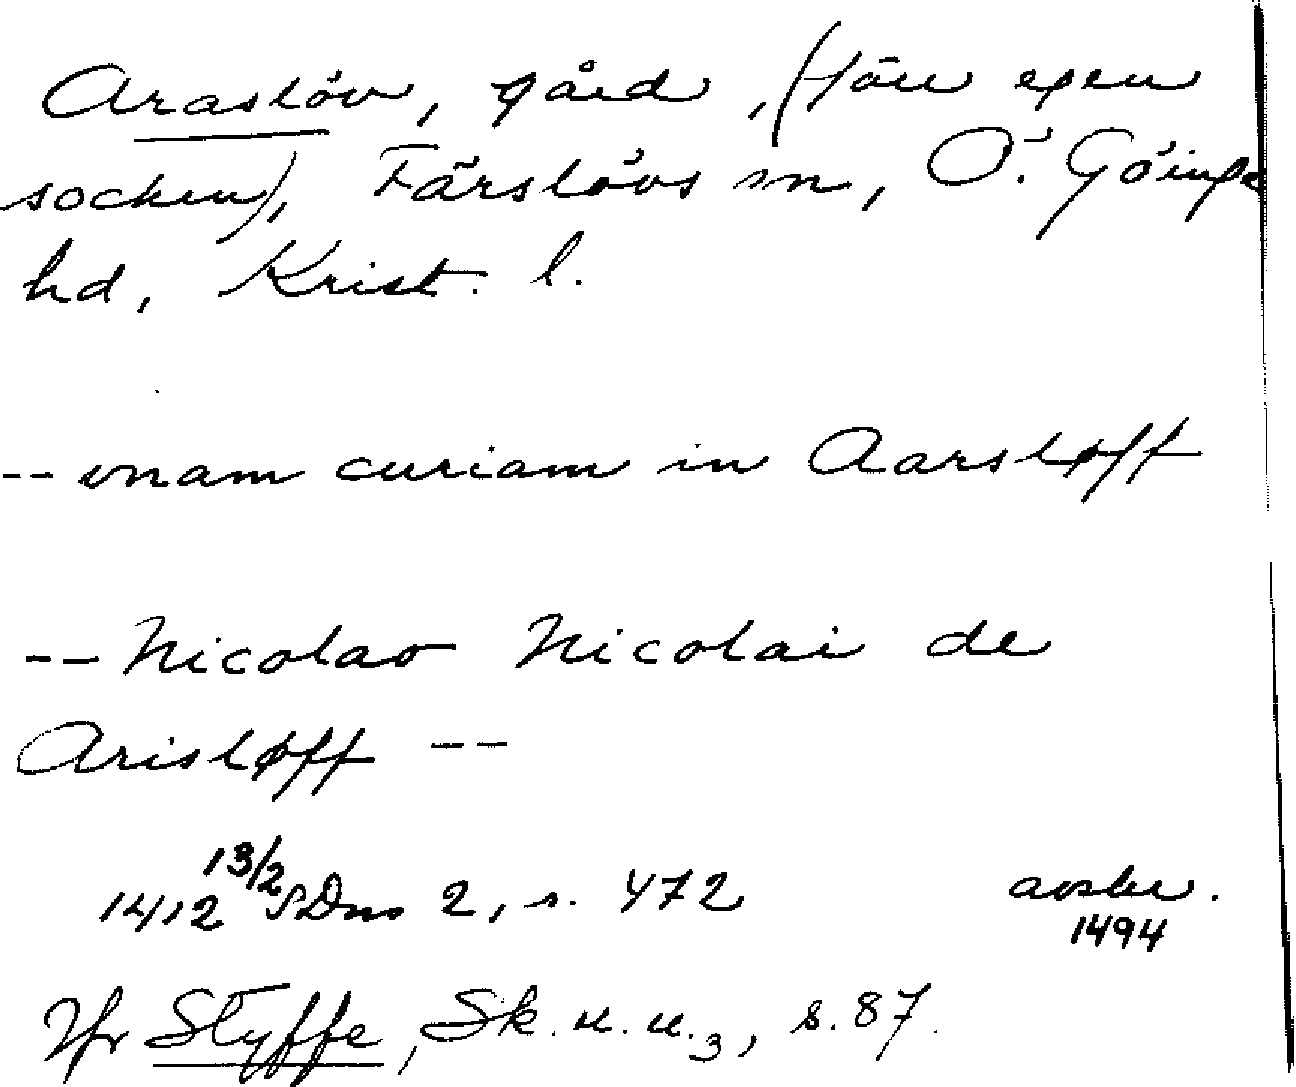 Araslöv, gård, (förr egen
socken), Färslövs sn, Ö. Göinge
hd, Krist. l.
-- vnam curiam in Aarsløff
-- Nicolao Nicolai de
Arisløff --
1412 13/2 SDns 2, s. 472 avskr.
1494
Jfr Styffe, Sk. u. u. 3, s. 87.